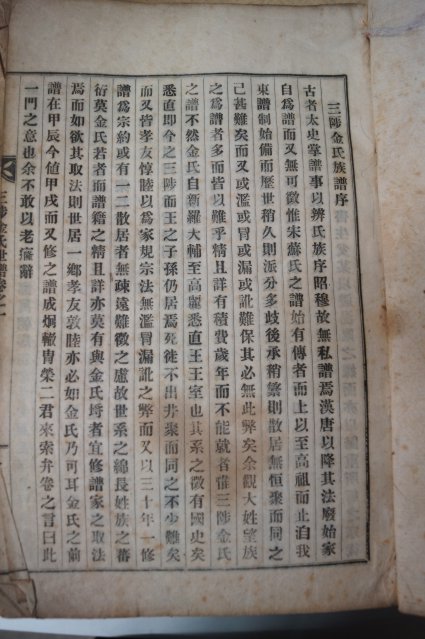 三陟金氏族譜序
古者太史掌譜事以辨氏族序昭穆故無私譜焉漢唐以降其法廢始家
自爲譜而又無可徵惟朱蘇氏之譜始有傳者而上以至高祖而止自我
東譜制始備而歷世稍久則派分多歧後承稍繁則散居無恒聚而同之
己甚難矣而又或濫或冒或漏或訛難保其必無此弊矣余觀大姓望族
之爲譜者多而皆以難乎精且詳有積費歲年而不能就者惟三陟金氏
之譜不然金氏自新羅大輔至高麗悉直王王室也其系之徵有國史矣
悉直即今之三陟而王之子孫仍居焉死徙不出井聚而同之不少難矣
而又皆孝友惇睦以爲家規宗法無濫冒漏訛之弊而又以三十年一修
譜爲宗約或有一二散居者無疎遠難徵之慮故世系之綿長姓族之蕃
衍莫金氏若者而譜籍之精且詳亦莫有與金氏埒者宜修譜家之取法
焉而如欲其取法則世居一鄕孝友敦睦亦必如金氏乃可耳金氏之前
譜在甲辰今値甲戌而又修之譜成炯轍胄榮二君來索弁卷之言曰此
一門之意也余不敢以老癃辭
三陟金氏世譜卷之一